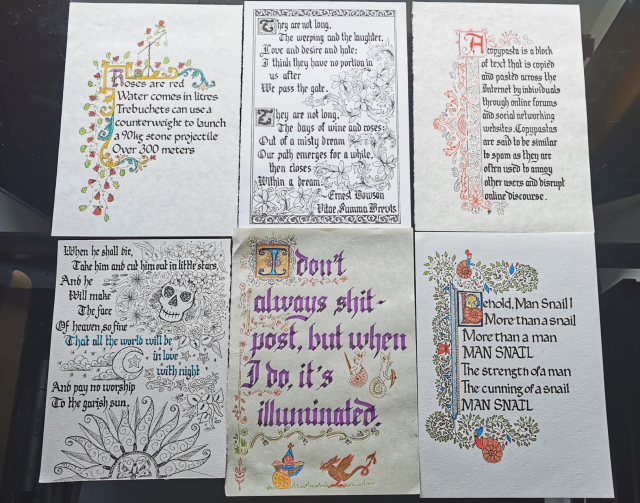 Roses are red
Water comes in litres
Trebuchets can use a
counterweight to launch
a 90kg stone projectile
Over 300 meters
They are not long,
The weeping and the laughter,
Love and desire and hate;
I think they have no portion in
us after
We pass the gate.
They are not long,
The days of wine and roses:
Out of a misty dream
Our path emerges for a while,
then closes
Within a dream.
~Ernest Dowson
Vitae Summa Brevis
A copypasta is a block
of text that is copied
and pasted across the
Internet by individuals
through online forums
and social networking
websites. Copypastas
are said to be similar
to spam as they are
often used to annoy
other users and disrupt
online discourse.
When he shall die,
Take him and cut him out in little stars,
And he
Will make
The face
Of heaven, so fine
That all the world will be
in love
with night
And pay no worship
To the garish sun.
I don't
always shit-
post, but when
I do, it's
illuminated.
Behold, Man Snail!
More than a snail
More than a man
MAN SNAIL
The strength of a man
The cunning of a snail
MAN SNAIL